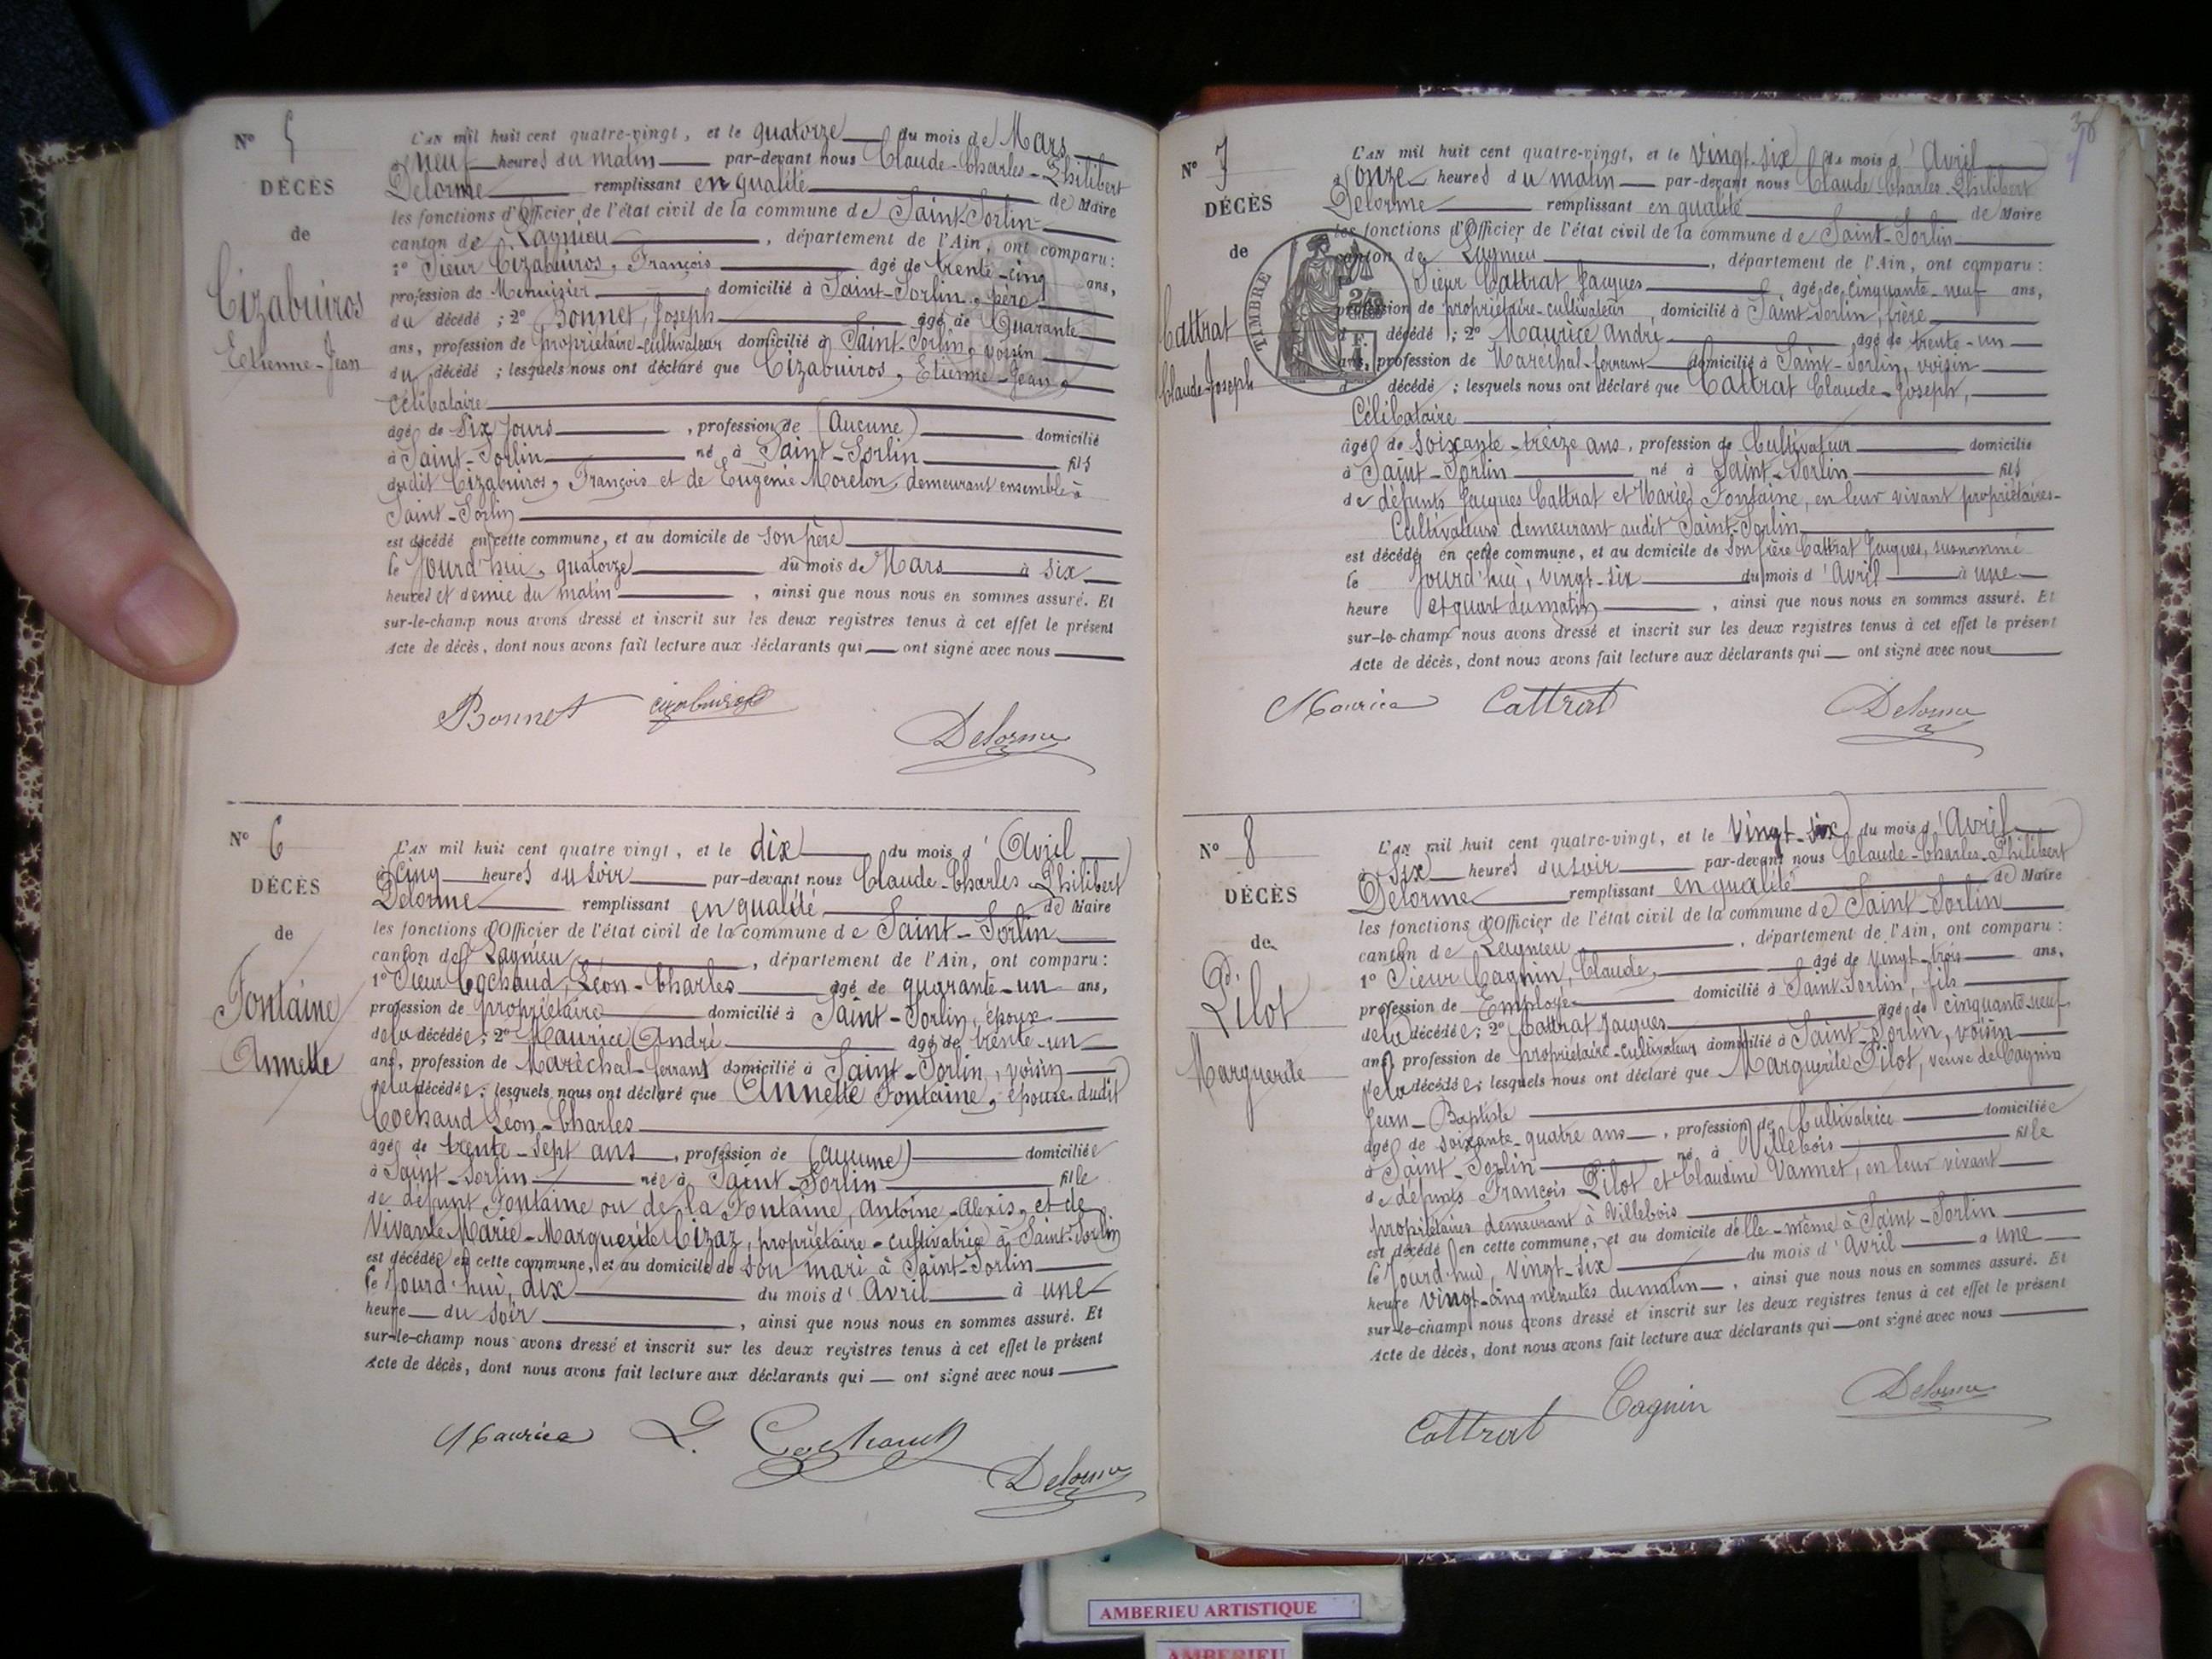 N° 5
DÉCÈS
de
Cizabuiros
Etienne-Jean
L'AN mil huit cent quatre-vingt, et le quatorze du mois de Mars
à neuf heures du matin par-devant nous Claude-Charles-Philibert
Delorme remplissant en qualité de Maire
les fonctions d'Officier de l'état civil de la commune de Saint-Sorlin
canton de Lagnieu, département de l'Ain, ont comparu :
1° Sieur Cizabuiros, François âgé de trente-cinq ans,
profession de Menuisier, domicilié à Saint-Sorlin, père
du décédé ; 2° Bonnet, Joseph âgé de Quarante
ans, profession de propriétaire-cultivateur domicilié à Saint-Sorlin, voisin
du décédé ; lesquels nous ont déclaré que Cizabuiros, Etienne-Jean,
Célibataire
âgé de Six jours, profession de (Aucune) domicilié
à Saint-Sorlin né à Saint-Sorlin fils
dudit Cizabuiros, François et de Eugénie Morelon, demeurant ensemble à
Saint-Sorlin
est décédé en cette commune, et au domicile de son père
le jourd'hui, quatorze du mois de Mars à six
heures et demie du matin, ainsi que nous nous en sommes assuré. Et
sur-le-champ nous avons dressé et inscrit sur les deux registres tenus à cet effet le présent
Acte de décès, dont nous avons fait lecture aux déclarants qui ont signé avec nous
Bonnet Cizabuiros
Delorme
N° 6
DÉCÈS
de
Fontaine
Annette
L'AN mil huit cent quatre vingt, et le dix du mois d'Avril
à cinq heures du soir par-devant nous Claude-Charles Philibert
Delorme remplissant en qualité de Maire
les fonctions d'Officier de l'état civil de la commune de Saint-Sorlin
canton de Lagnieu, département de l'Ain, ont comparu :
1° Sieur Cochaud, Léon-Charles âgé de quarante-un ans,
profession de propriétaire domicilié à Saint-Sorlin, époux
de la décédée ; 2° Maurice André âgé de trente-un
ans, profession de Maréchal-ferrant domicilié à Saint-Sorlin, voisin
de la décédée ; lesquels nous ont déclaré que Annette Fontaine, épouse dudit
Cochaud Léon-Charles
âgée de trente-sept ans, profession de (aucune) domiciliée
à Saint-Sorlin née à Saint-Sorlin fille
de défunt Fontaine ou de la Fontaine, Antoine-Alexis, et de
Vivante Marie-Marguerite Cizaz, propriétaire-cultivatrice à Saint-Sorlin
est décédée en cette commune, et au domicile de son mari à Saint-Sorlin
le jourd'hui, dix du mois d'Avril à une
heure du soir, ainsi que nous nous en sommes assuré. Et
sur-le-champ nous avons dressé et inscrit sur les deux registres tenus à cet effet le présent
Acte de décès, dont nous avons fait lecture aux déclarants qui ont signé avec nous
Maurice L. Cochaud
Delorme
38
N° 7
DÉCÈS
de
TIMBRE
Cattrat
Claude-Joseph
L'AN mil huit cent quatre-vingt, et le Vingt-six du mois d'Avril
à onze heures du matin par-devant nous Claude Charles-Philibert
Delorme remplissant en qualité de Maire
les fonctions d'Officier de l'état civil de la commune de Saint-Sorlin
canton de Lagnieu, département de l'Ain, ont comparu :
Sieur Cattrat Jacques âgé de cinquante-neuf ans,
profession de propriétaire-cultivateur domicilié à Saint-Sorlin, frère
d décédé ; 2° Maurice André âgé de trente-un
ans, profession de Maréchal-ferrant domicilié à Saint-Sorlin, voisin
d décédé ; lesquels nous ont déclaré que Cattrat Claude-Joseph,
Célibataire
âgé de soixante-treize ans, profession de Cultivateur domicilié
à Saint-Sorlin né à Saint-Sorlin fils
de défunts Jacques Cattrat et Marie Fontaine, en leur vivant propriétaires-
Cultivateurs demeurant audit Saint-Sorlin
est décédé en cette commune, et au domicile de son frère Cattrat Jacques, susnommé
le jourd'hui, vingt-six du mois d'Avril à une
heure et quart du matin, ainsi que nous nous en sommes assuré. Et
sur-le-champ nous avons dressé et inscrit sur les deux registres tenus à cet effet le présent
Acte de décès, dont nous avons fait lecture aux déclarants qui ont signé avec nous
Maurice Cattrat Delorme
N° 8
DÉCÈS
de
Pilot
Marguerite
L'AN mil huit cent quatre-vingt, et le Vingt-six du mois d'Avril
à Six heures du soir par-devant nous Claude-Charles-Philibert
Delorme remplissant en qualité de Maire
les fonctions d'Officier de l'état civil de la commune de Saint-Sorlin
canton de Lagnieu, département de l'Ain, ont comparu :
1° Sieur Cagnin, Claude, âgé de vingt-trois ans,
profession de Employé domicilié à Saint-Sorlin, fils
de la décédée ; 2° Cattrat Jacques âgé de cinquante-neuf
ans, profession de propriétaire-cultivateur domicilié à Saint-Sorlin, voisin
de la décédée ; lesquels nous ont déclaré que Marguerite Pilot, veuve de Cagnin
Jean-Baptiste
âgée de soixante-quatre ans, profession de Cultivatrice domiciliée
à Saint-Sorlin né à Villebois fille
de défunts François Pilot et Claudine Vannet, en leur vivant
propriétaires demeurant à Villebois
est décédé en cette commune, et au domicile d'elle-même à Saint-Sorlin
le jourd'hui, Vingt-six du mois d'Avril à une
heure vingt-cinq minutes du matin, ainsi que nous nous en sommes assuré. Et
sur-le-champ nous avons dressé et inscrit sur les deux registres tenus à cet effet le présent
Acte de décès, dont nous avons fait lecture aux déclarants qui ont signé avec nous
Cattrat Cagnin Delorme
AMBERIEU ARTISTIQUE
AMBERIEU